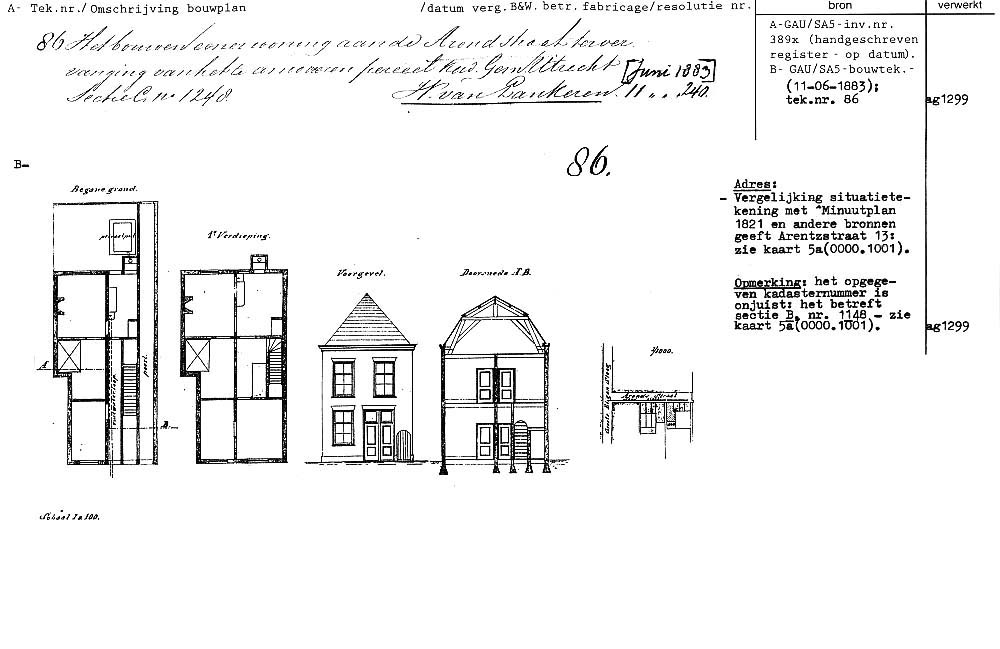 A- Tek.nr./ Omschrijving bouwplan /datum verg. B&W. betr. fabricage/resolutie nr. bron verwerkt
86 Het bouwen eener woning aan de Arendstraat ter ver-
vanging van het te amoveeren perceel Kad. Gem Utrecht [Juni 1883]
Sectie C. no 1248. H. van Lankeren. 11 „ „ 240.
A-GAU/SA5-inv.nr.
389x (handgeschreven
register - op datum).
B- GAU/SA5-bouwtek.-
(11-06-1883);
tek.nr. 86
ag1299
B-
86.
Begane grond.
1e Verdieping.
Voorgevel.
Doorsnede A B.
A
B
poort
Schaal 1 a 100.
1/1000.
Adres:
- Vergelijking situatiete-
kening met "Minuutplan
1821 en andere bronnen
geeft Arentzstraat 13:
zie kaart 5a(0000.1001).
Opmerking: het opgege-
ven kadasternummer is
onjuist: het betreft
sectie B, nr. 1148 - zie
kaart 5a(0000.1001).
ag1299